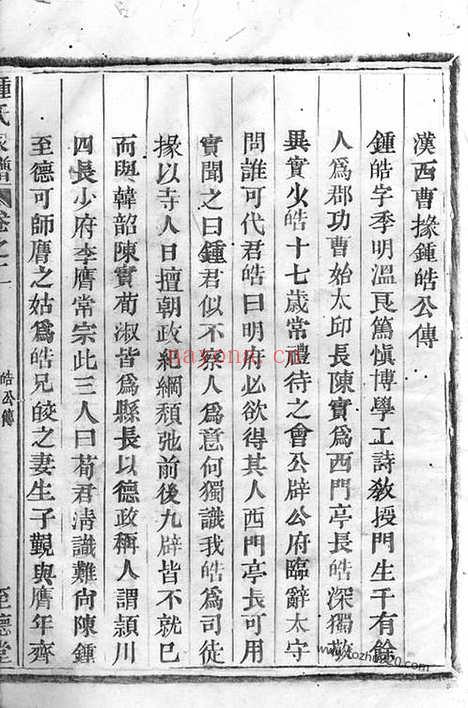 漢西曹掾鍾皓公傳
鍾皓字季明溫良篤慎博學工詩教授門生千有餘
人為郡功曹始太邱長陳實為西門亭長皓深獨敬
異實少皓十七歲常禮待之會公辟公府臨辭太守
問誰可代君皓曰明府必欲得其人西門亭長可用
實聞之曰鍾君似不察人為意何獨識我皓為司徒
掾以寺人日擅朝政紀綱頹弛前後九辟皆不就已
而與韓韶陳實荀淑皆為縣長以德政稱人謂潁川
四長少府李膺常宗此三人曰荀君清識難尚陳鍾
至德可師膺之姑為皓兄皎之妻生子覲與膺年齊
鍾氏家譜
卷之二
皓公傳
至德堂
nayona.cn
www.tozhupu200.com